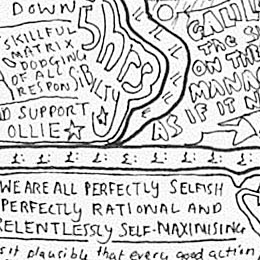 DOWN
SKILLFUL
MATRIX
DODGING
OF ALL
RESPONSIBILTY
5hrs
D SUPPORT
OLLIE
THE S
ON THE
MANN
AS IF IT N
£: £: £: £: £: £: £: £:
WE ARE ALL PERFECTLY SELFISH
PERFECTLY RATIONAL AND
RELENTLESSLY SELF-MAXIMISING
is it plausible that every good action,